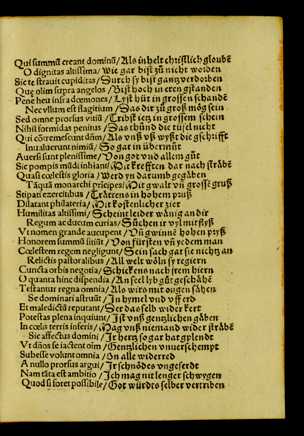 Qui summū creant dominū/Als in helt christlich gloubē
O dignitas altissima/Wie gar bist zů nicht worden
Sic te strauit cupiditas/Durch sy bist gantz verdorben
Que olim supra angelos/Bist hoch in eren gstanden
Pene heu infra dœmones/Lyst hüt in grossen schandē
Nec vllum est flagitium/Das dir zů groß mög sein
Sed omne prorsus vitiū/Tribst ietz in grossem schein
Nihil formidas penitus/Das thünd die tüfel nicht
Qui cōtremescunt dām/Als vnß vß wyßt die gschrifft
Inualuerunt nimiū/So gar in übermůt
Auersi sunt plenissime/Von got vnd allem gůt
Sic pompis mūdi inhiāt/Mit krefften dar nach strābē
Quasi cœlestis gloria/Werd yn darumb gegābē
Tāquā monarchi prīcipes/Mit gwalt vñ grosse gruß
Stipati exercitibus/Trattens in hohem pruß
Dilatant philateria/Mit kostenlicher zier
Humilitas altissimi/Scheint leider wānig an dir
Regum ac ducum curias/Sůchen ir vyl mit flyß
Vt nomen grande aucupent/Vñ gwinnē hohen pryß
Honorem summū sitiūt/Von fürsten vñ yedem man
Cœlestem regem negligunt/Sein sach gat sie nichtz an
Relictis pastoralibus/All welt wöln sy regiern
Cuncta orbis negotia/Schicken s nach irem hiern
O quanta hinc dispendia/An seel lyb gůt geschāhē
Testantur regna omnia/Als wir mit ougen sāhen
Se dominari astruāt/In hymel vnd vff erd
Et maledici reputant/Der das selb wider kert
Potestas plena inquiunt/Ist vnß gentzlichen gāben
In cœlis terris inferis/Mag vnß niemand wider strābē
Sic affectus domini/Ir hertz so gar hat gplendt
Vt dños se iactent oīm/Gentzlichen vnuerschempt
Subesse volunt omnia/On alle widerred
A nullo prorsus argui/Ir schnödes vngeferdt
Nam tāta est ambitio/Ich mag nit lenger schwygen
Quod si foret possibile/Got würd es selber vertriben